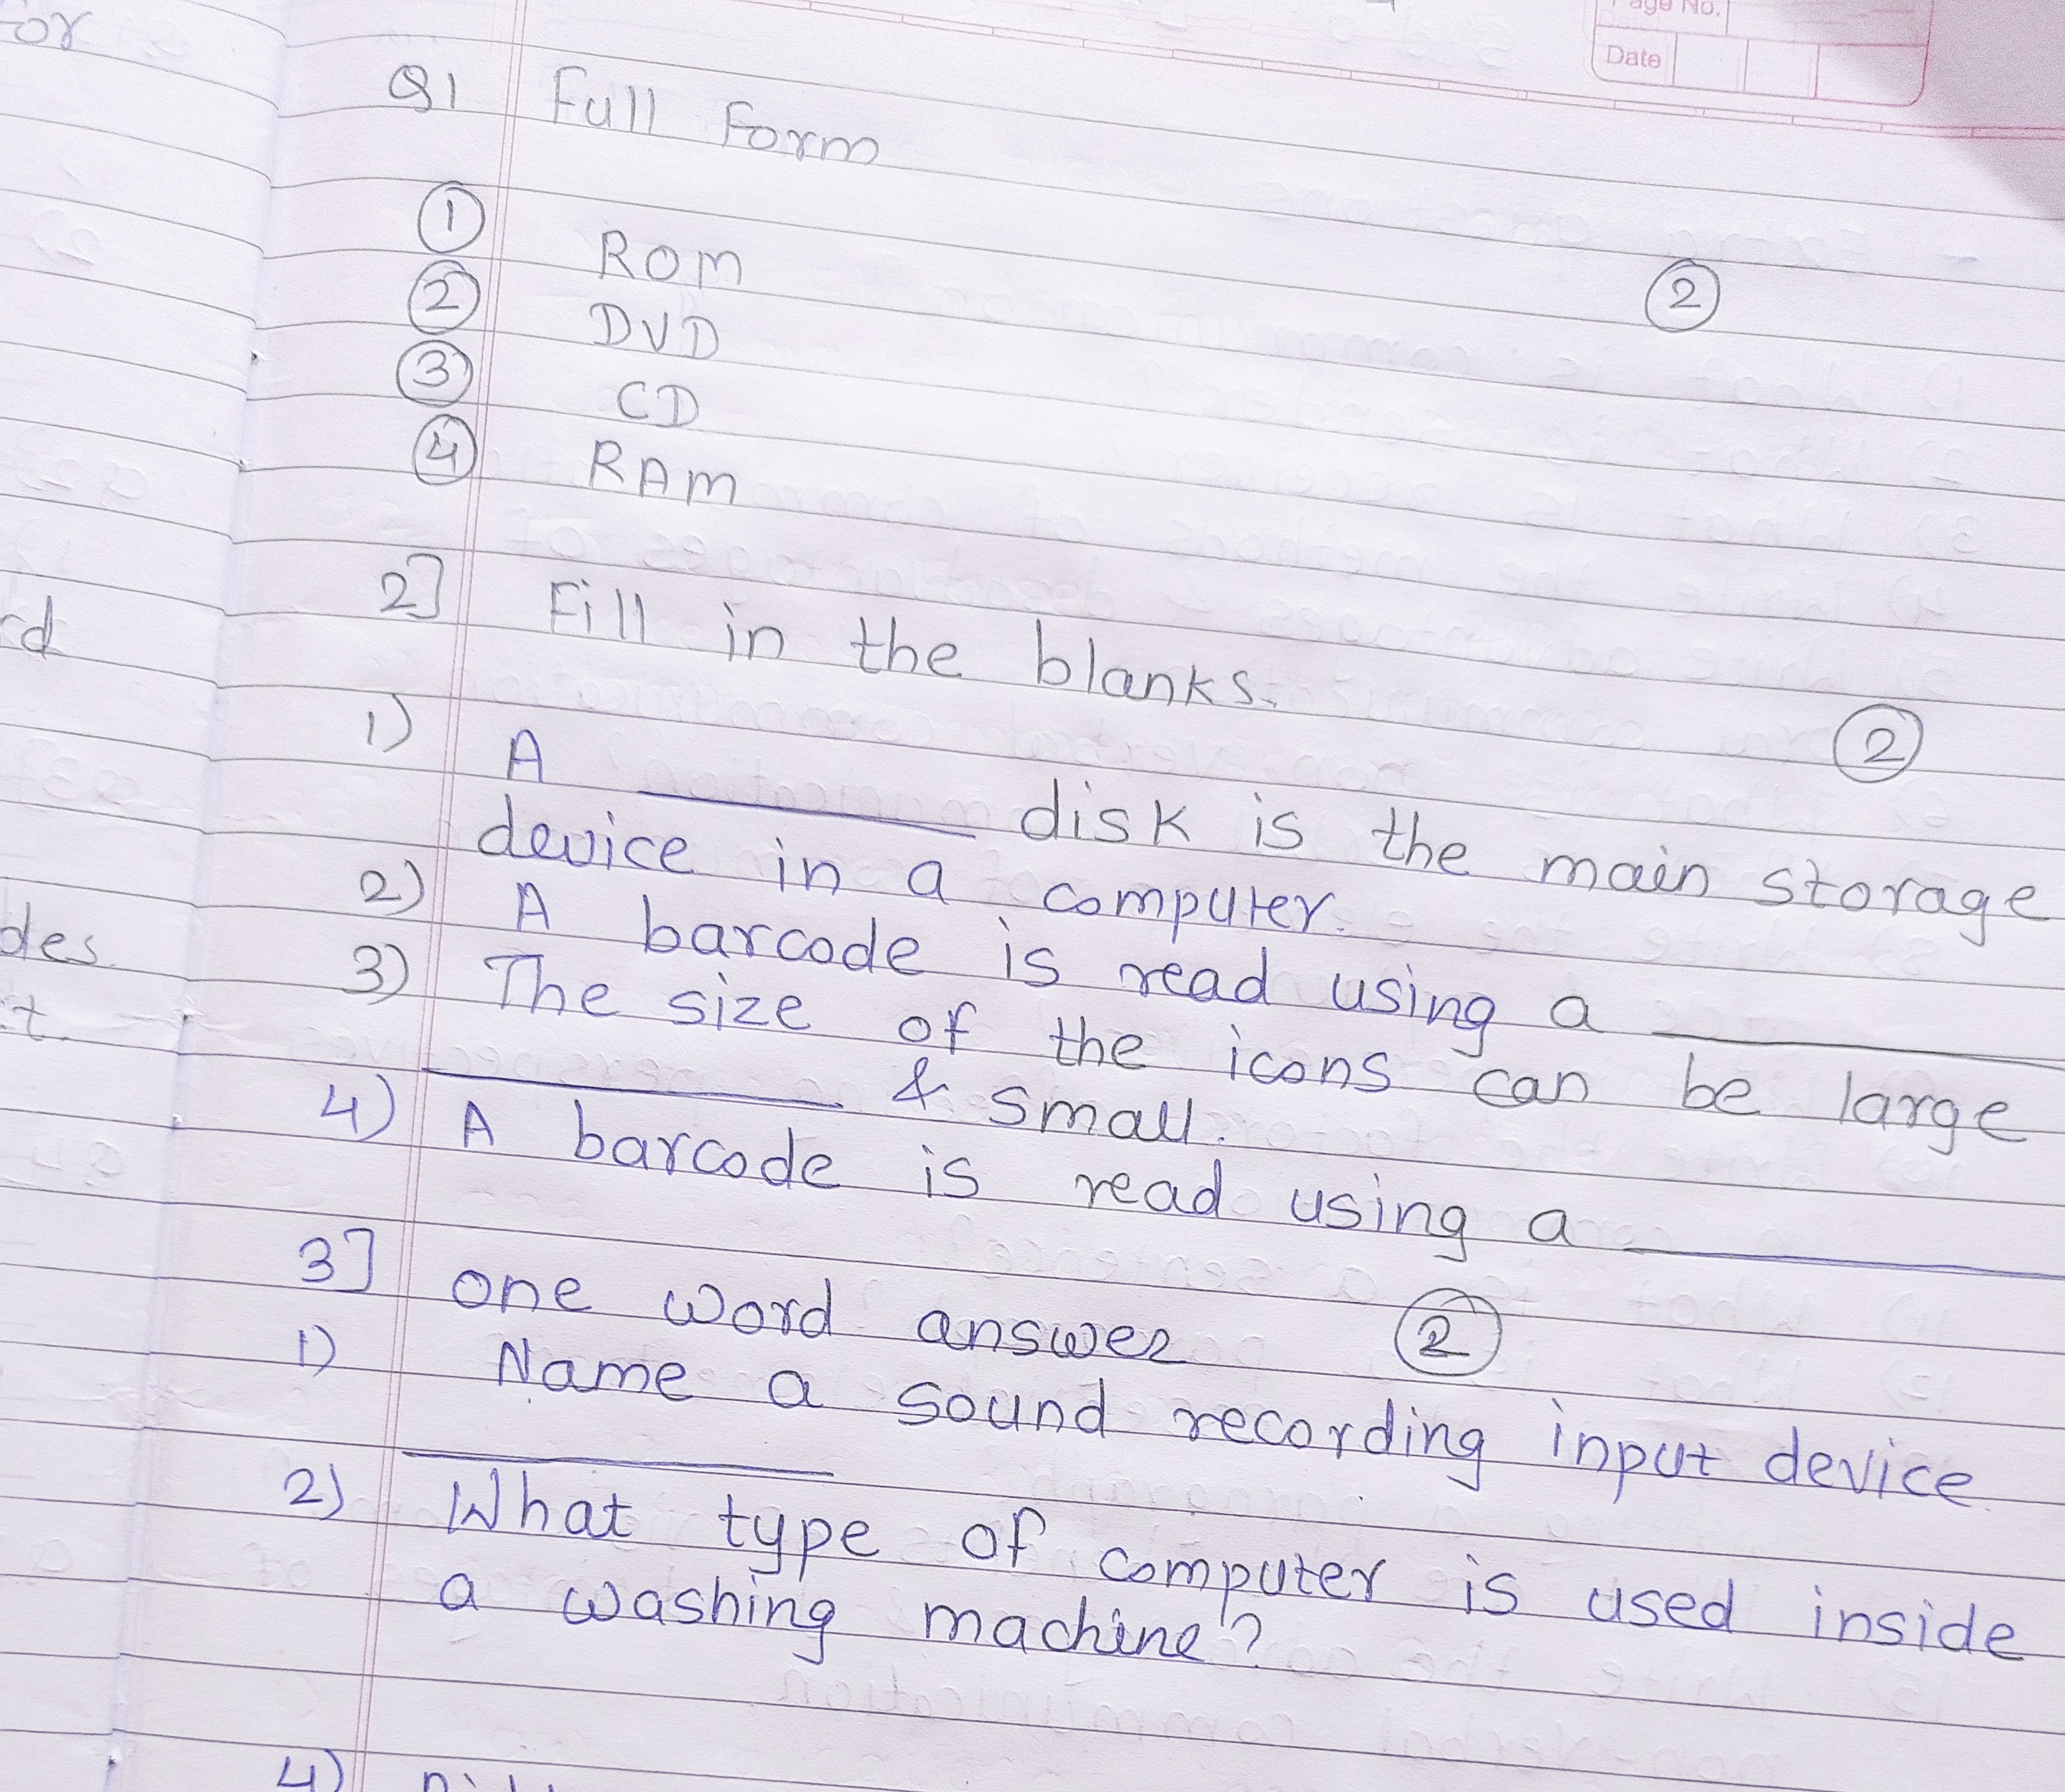 Page No.
Date
or
Q1 Full Form
① ROM ②
② DVD
③ CD
④ RAM
2] Fill in the blanks. ②
rd
1) A ________ disk is the main storage
device in a computer.
2) A barcode is read using a ________
des.
3) The size of the icons can be large
t.
________ & small.
4) A barcode is read using a ________
3] one word answer ②
1) Name a sound recording input device
________
2) What type of computer is used inside
a washing machine?
4)